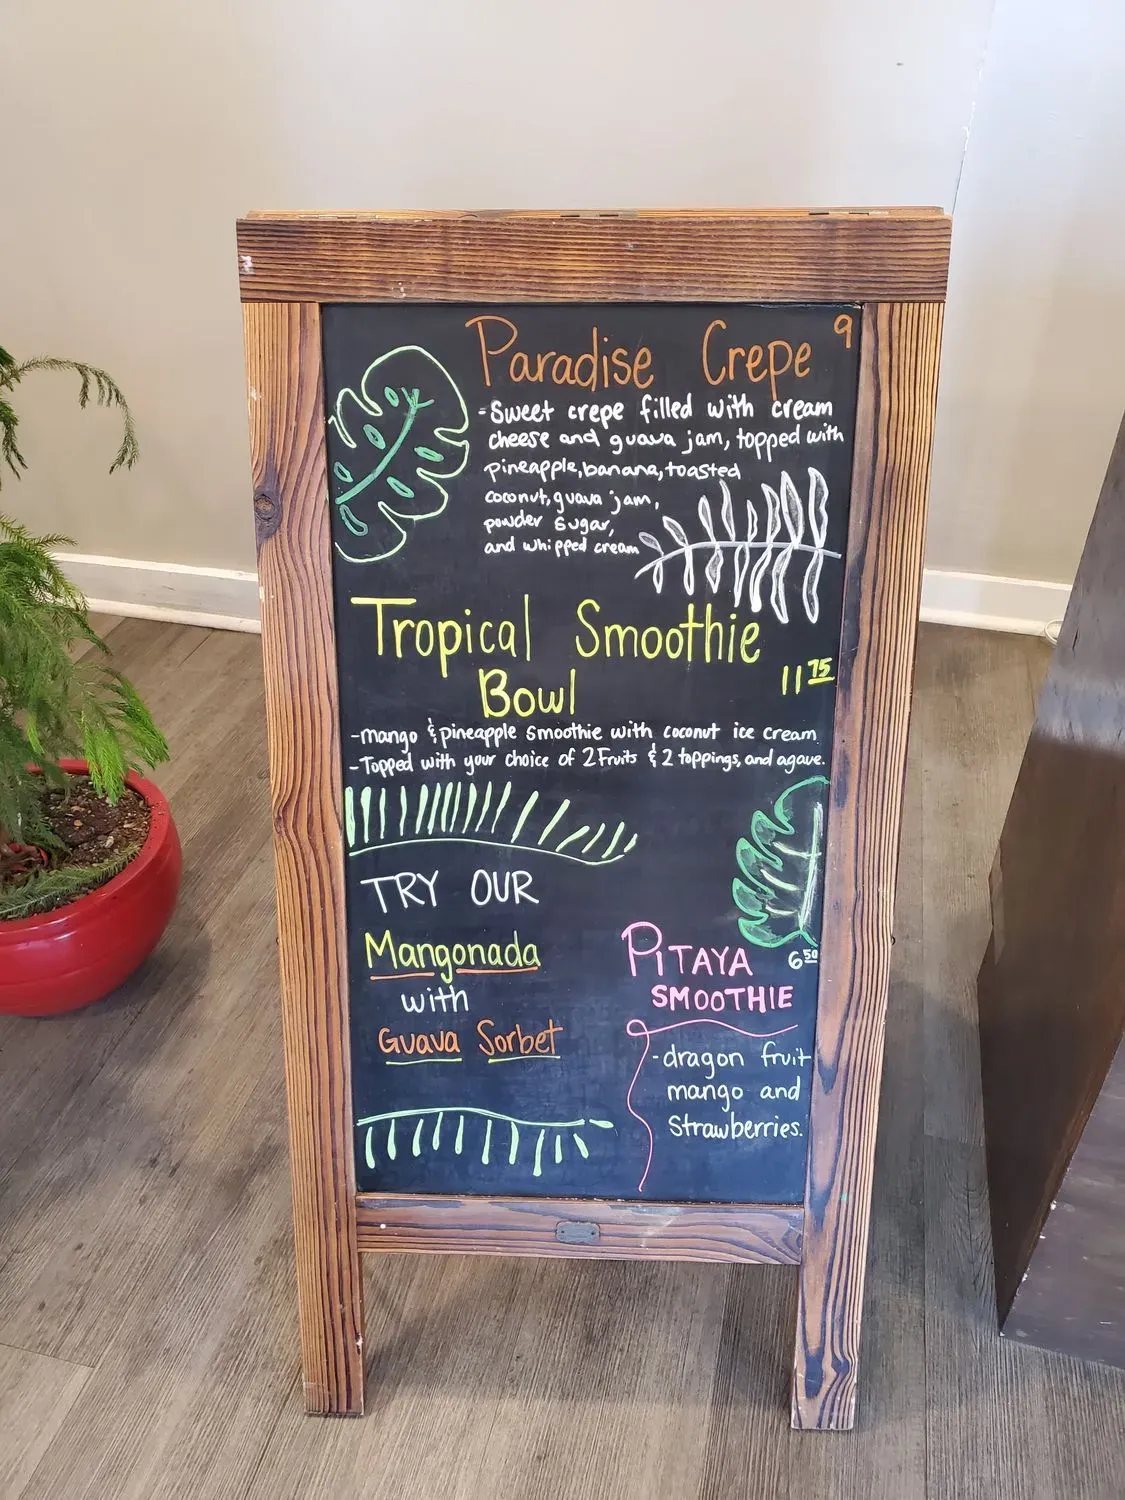 Paradise Crepe 9
-Sweet crepe filled with cream
cheese and guava jam, topped with
pineapple, banana, toasted
coconut, guava jam,
powder sugar,
and whipped cream
Tropical Smoothie
Bowl 11 75
-mango & pineapple smoothie with coconut ice cream
-Topped with your choice of 2 Fruits & 2 toppings, and agave.
TRY OUR
Mangonada
with
Guava Sorbet
PITAYA 6 50
SMOOTHIE
-dragon fruit
mango and
Strawberries.